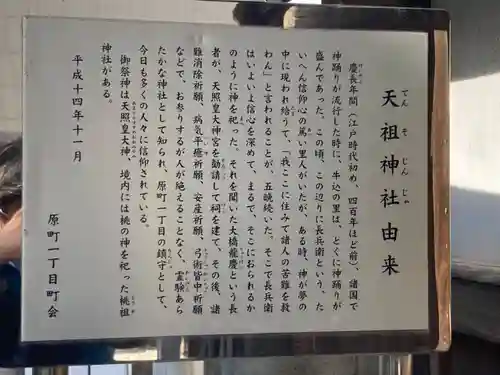 天祖神社由来
てんそじんじゃ
慶長年間（江戸時代初め、四百年ほど前）、諸国で
神踊りが流行した時に、牛込の里は、とくに神踊りが
盛んであった。この頃、この辺りに長兵衛という、た
いへん信仰心の篤い里人がいたが、ある時、神が夢の
中に現われ給うて、「我ここに住みて諸人の苦難を救
わん」と言われることが、五晩続いた。そこで長兵衛
はいよいよ信心を深めて、まるで、そこにおられるか
のように神を祀った。それを聞いた大橋龍慶という長
者が、天照皇大神宮を勧請して祠を建て、その後、諸
難消除祈願、病気平癒祈願、安産祈願、弓術皆中祈願
などで、お参りするが人が絶えることなく、霊験あら
たかな神社として知られ、原町一丁目の鎮守として、
今日も多くの人々に信仰されている。
御祭神は天照皇大神、境内には桃の神を祀った桃祖
神社がある。
平成十四年十一月
原町一丁目町会